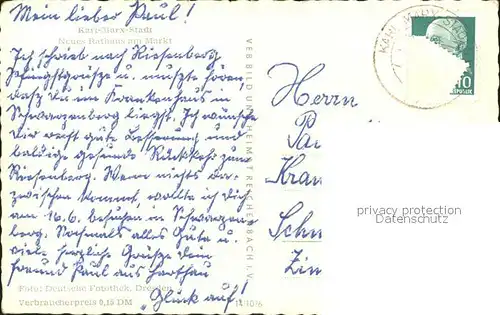 Mein lieber Paul!
Karl-Marx-Stadt
Neues Rathaus am Markt
Ich schrieb nach Riesenberg
Pfingstgrüße u. mußte hören,
daß Du im Krankenhaus in
Schwarzenberg liegst. Ich wünsche
Dir recht gute Besserung und
baldige gesunde Rückkehr zum
Riesenberg. Wenn nichts da-
zwischen kommt, wollte ich Dich
am 16.6. besuchen in Schwarzen-
berg. Nochmals alles Gute u.
viele herzliche Grüße Dein
Freund Paul aus Harthau
Foto: Deutsche Fotothek, Dresden
Verbraucherpreis 0,15 DM
"Glück auf!"
VEB BILD UND HEIMAT REICHENBACH I. V.
KARL-MARX-STADT
10
Herrn
Pau
Kran
Schw
Zim
privacy protection
Datenschutz